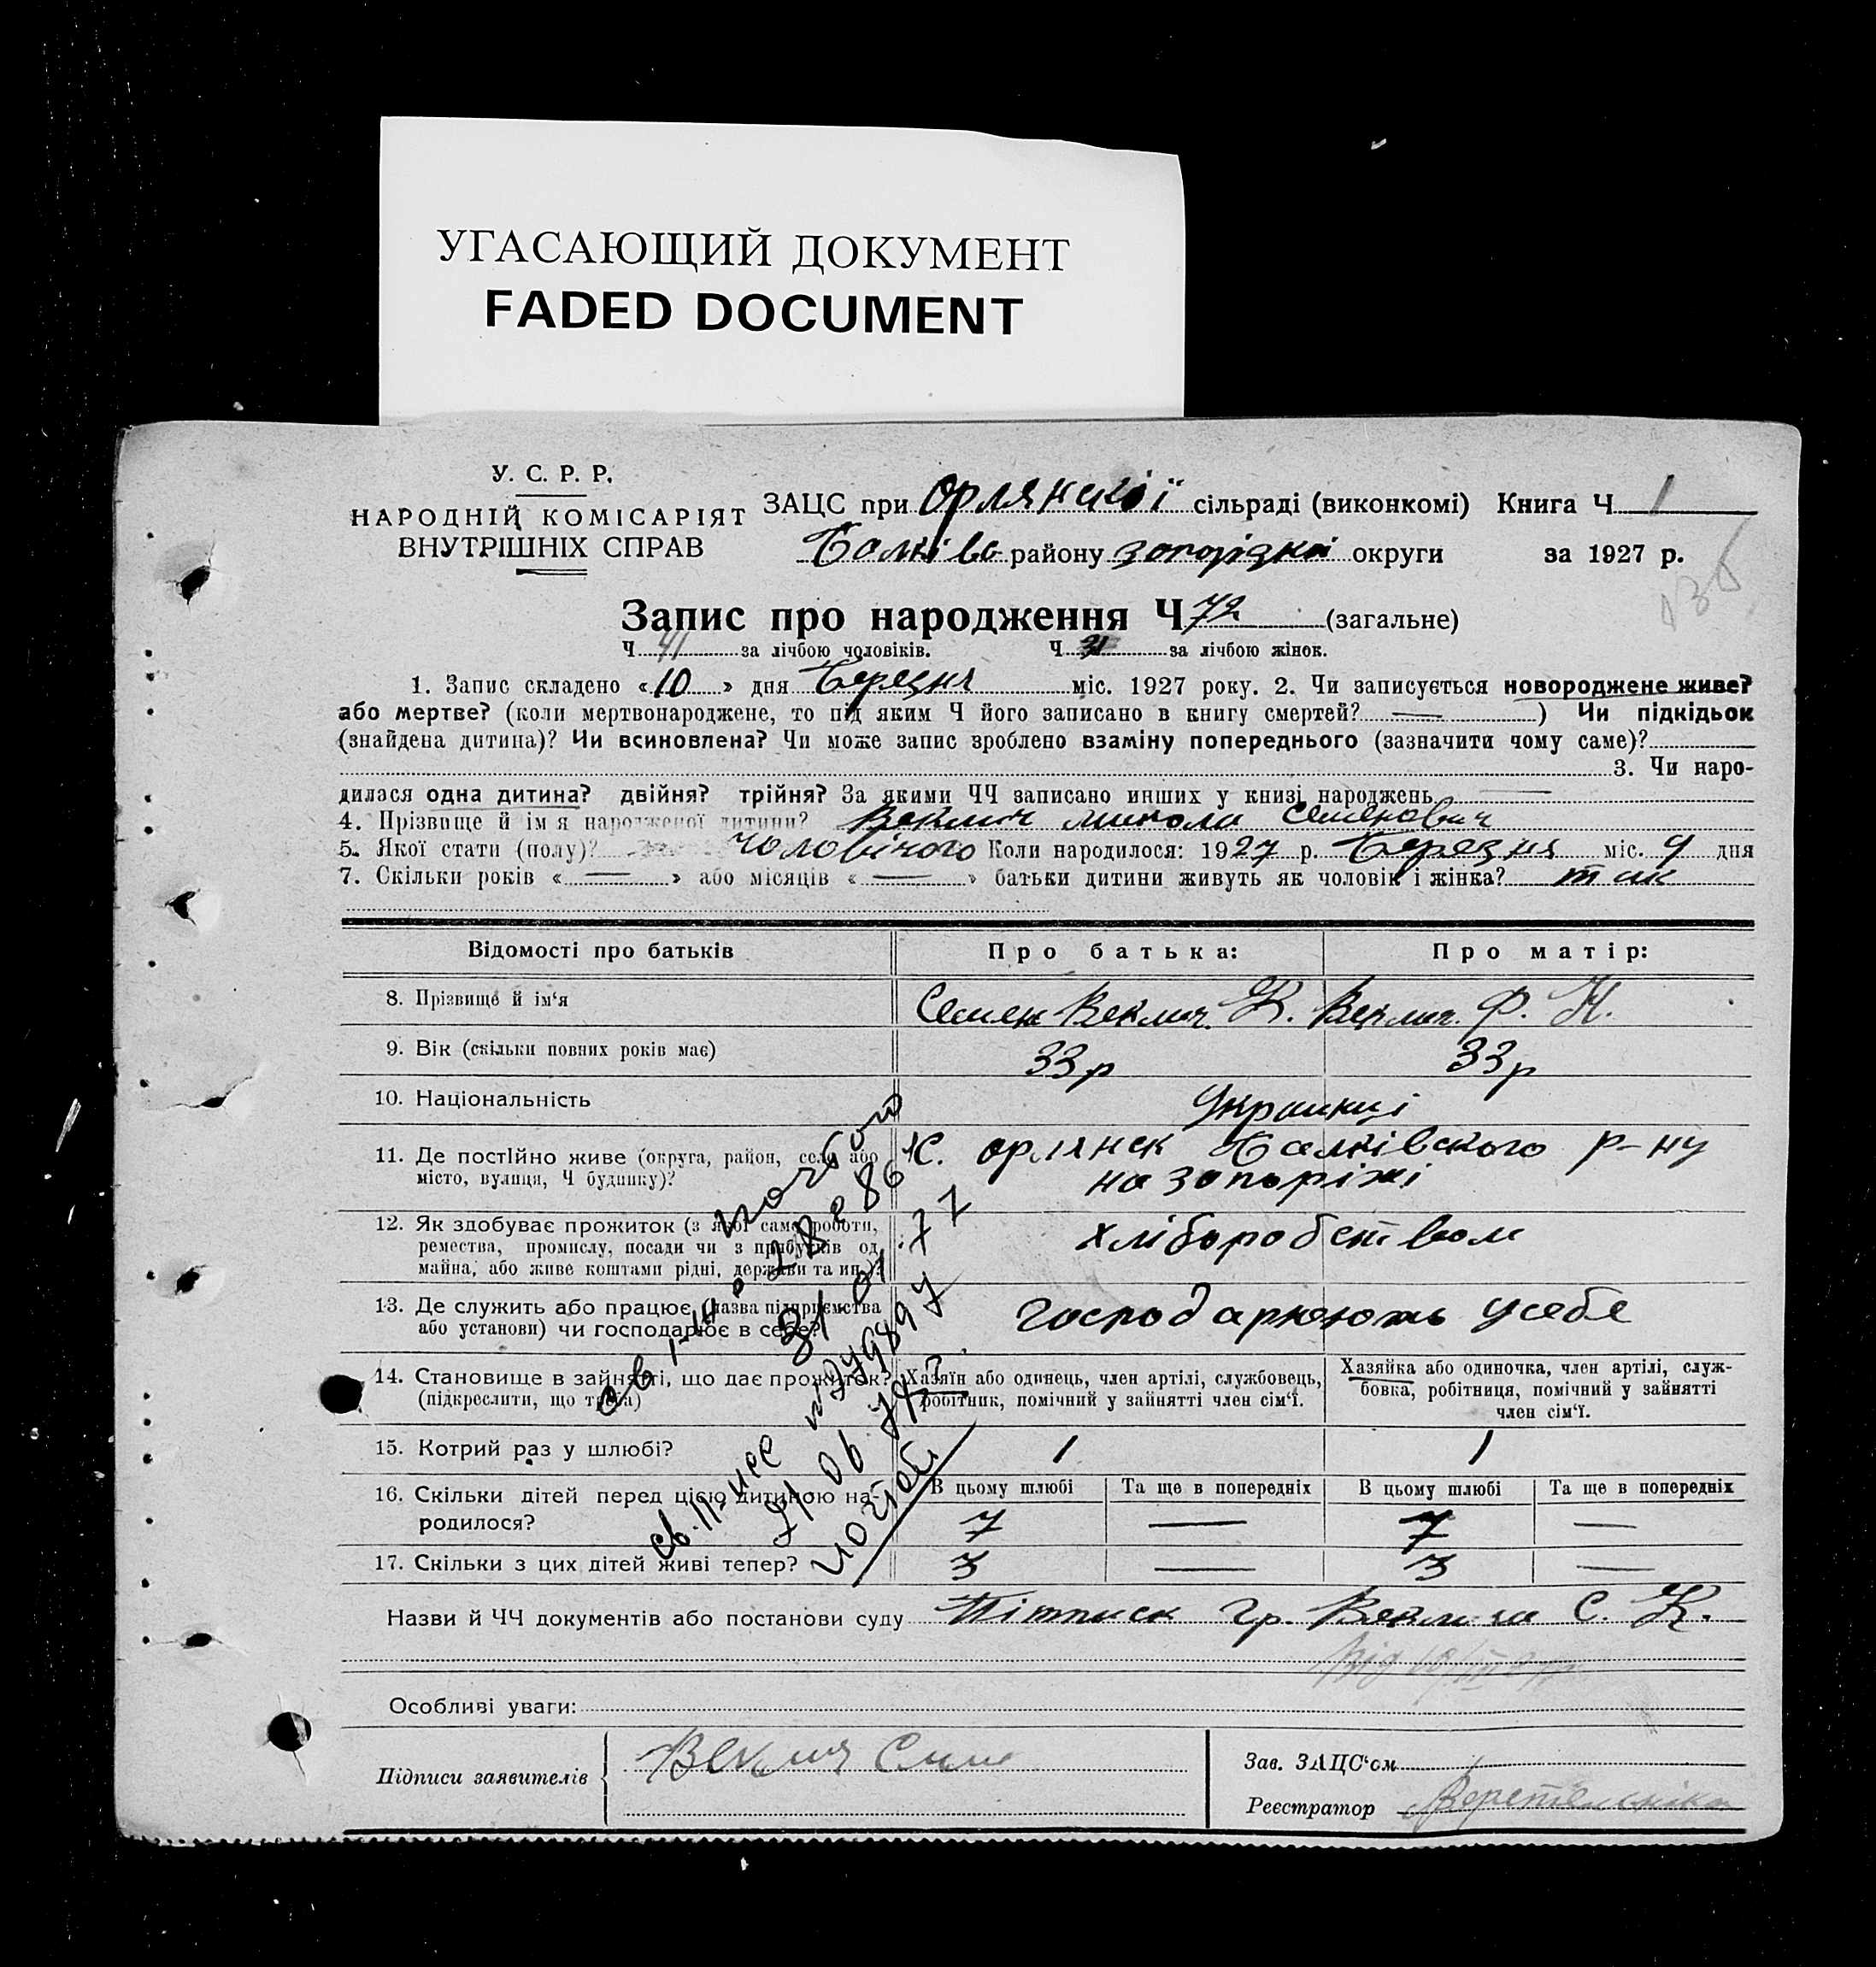 УГАСАЮЩИЙ ДОКУМЕНТ
FADED DOCUMENT
У. С. Р. Р.
НАРОДНІЙ КОМІСАРІЯТ
ВНУТРІШНІХ СПРАВ
ЗАЦС при Орлянській сільраді (виконкомі) Книга Ч 1
Балків району запорізкої округи за 1927 р.
Запис про народження Ч 72 (загальне)
Ч 41 за лічбою чоловіків. Ч 31 за лічбою жінок.
1. Запис складено «10» дня Березня міс. 1927 року. 2. Чи записується новороджене живе?
або мертве? (коли мертвонароджене, то під яким Ч його записано в книгу смертей? —) Чи підкідьок
(знайдена дитина)? Чи всиновлена? Чи може запис зроблено взаміну попереднього (зазначити чому саме)?
3. Чи наро-
дилася одна дитина? двійня? трійня? За якими ЧЧ записано инших у книзі народжень —
4. Прізвище й ім'я народженої дитини? Веклич Микола Семенович
5. Якої стати (полу)? чоловічого Коли народилося: 1927 р. Березня міс. 9 дня
7. Скільки років «—» або місяців «—» батьки дитини живуть як чоловік і жінка? так
Відомості про батьків Про батька: Про матір:
8. Прізвище й ім'я Семен Веклич К. Веклич Ф. Н.
9. Вік (скільки повних років має) 33 р 33 р
10. Національність Украинці
11. Де постійно живе (округа, район, село або С. Орлянск Балківского р-ну
місто, вулиця, Ч будинку)? на запоріжі
12. Як здобуває прожиток (з якої саме роботи, хліборобством
ремества, промислу, посади чи з прибутків од
майна, або живе коштами рідні, держави та ин.)?
13. Де служить або працює (назва підприємства господарюють усебе
або установи) чи господарює в себе?
14. Становище в зайнятті, що дає прожиток? Хазяїн або одинець, член артілі, службовець, Хазяйка або одиночка, член артілі, служ-
(підкреслити, що треба) робітник, помічний у зайнятті член сім'ї. бовка, робітниця, помічний у зайнятті
член сім'ї.
15. Котрий раз у шлюбі? 1 1
16. Скільки дітей перед цією дитиною на- В цьому шлюбі Та ще в попередніх В цьому шлюбі Та ще в попередніх
родилося? 7 — 7 —
17. Скільки з цих дітей живі тепер? 3 — 3 —
Назви й ЧЧ документів або постанови суду Пітписк гр. Веклича С. К.
Особливі уваги:
Підписи заявителів Веклич Зав. ЗАЦС'ом
Реєстратор